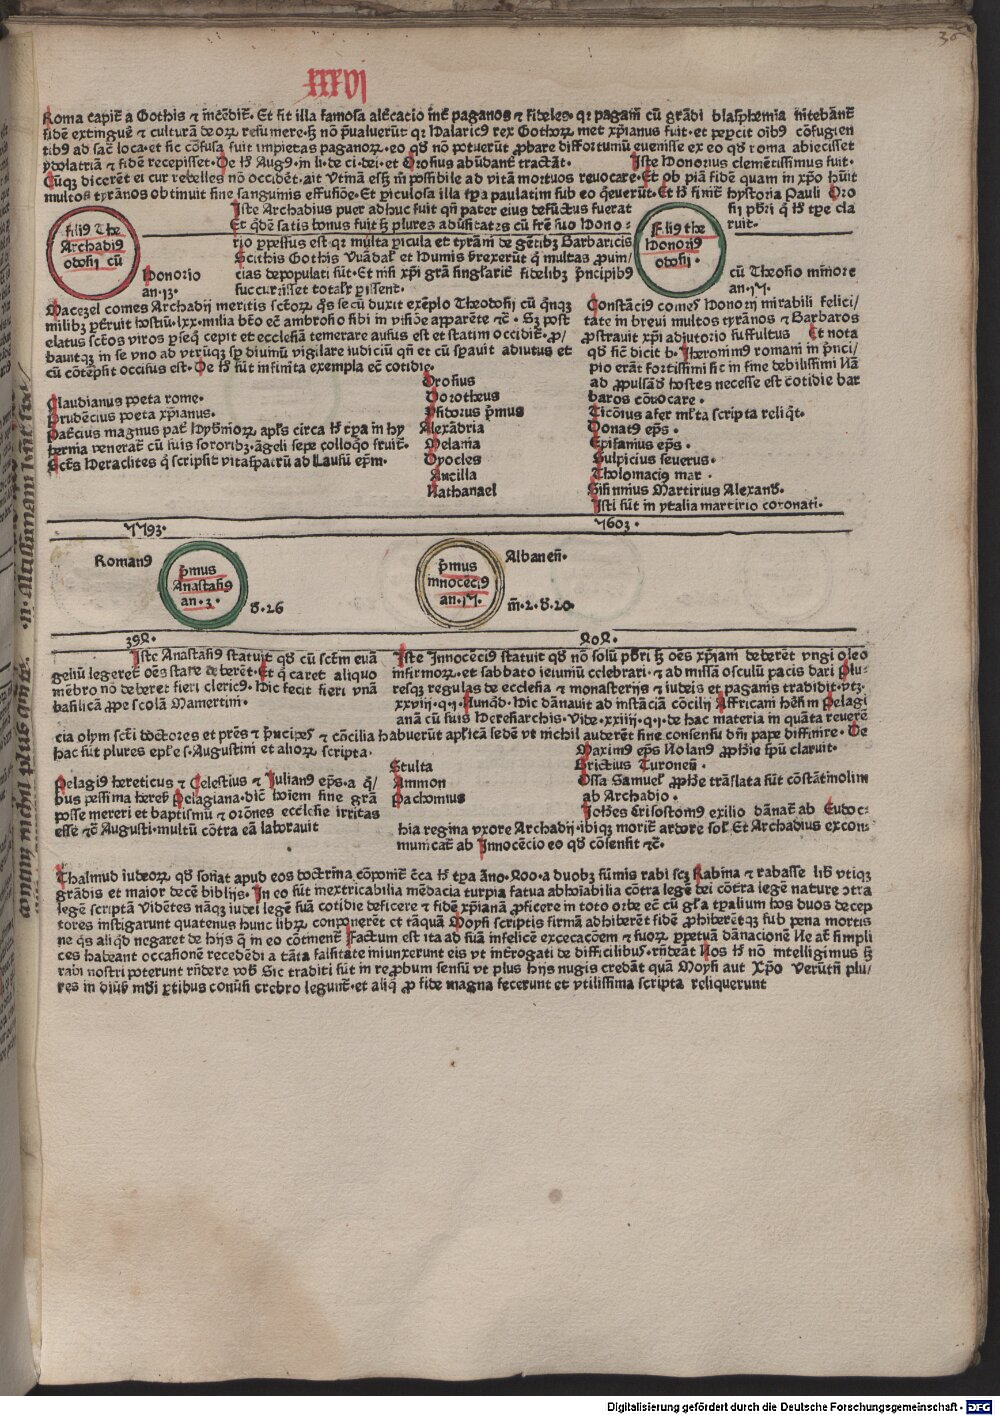 36
XXXVI
Roma capit᷒ a Gothis ⁊ incēdit᷒. Et fit illa famosa alt̄cacio int̄ paganos ⁊ fideles. qꝛ pagani cū grādi blasphemia nitebant᷒
fidē extinguē ⁊ culturā deoꝝ resumere. sꝫ nō p̄ualuerūt qꝛ Halaricꝰ rex Gothoꝝ met xp̄ianus fuit. et peꝑcit oībꝰ cōfugien
tibꝰ ad sac᷒ loca. et sic cōfusa fuit impietas paganoꝝ. eo qď nō potuerūt ꝓbare diffortuniū euenisse ex eo qď roma abiecisset
ydolatriā ⁊ fidē recepisset. De hꝭ Augꝰ. in li. de ci. dei. et Orosius abūdant᷒ tractāt. Iste Honorius clemētissimus fuit.
Cūqꝫ dicerēt ei cur rebelles nō occidēt. ait Vtinā essꝫ m̄ possibile ad vitā mortuos reuocare. Et ob piā fidē quam in xp̄o hūit
multos tyrānos obtinuit sine sanguinis effusiōe. Et ꝑiculosa illa tꝑa paulatim sub eo q̄euerūt. Et hꝭ finit᷒ hystoria Pauli Oro
filiꝰ The
Archadiꝰ
odosij cū
Honorio
an. 13.
Iste Archadius puer adhuc fuit qn̄ pater eius defūctus fuerat
Et qdē satis bonus fuit sꝫ plures aduersitates cū fr̄e suo Hono-
rio ꝑpessus est. qꝛ multa ꝑicula et tyrāni de gētibꝫ Barbaricis
Scithis Gothis Vuādal᷒ et Hunnis surrexerūt q̄ multas ꝓuin/
cias depopulati sūt. Et nisi xp̄i grā singlarit᷒ fidelibꝫ p̄ncipibꝰ
succurrisset total᷒r ꝑissent.
sij pb̄ri q̄ hꝭ tꝑe cla
ruit.
Filiꝰ the
Honoriꝰ
odosij.
cū Theosio minore
an. 15.
Macezel comes Archadij meritis scōꝝ q̄s secū duxit exēplo Theodosij cū q̄nqꝫ
milibꝫ ꝑt̄ruit hostiū. lxx. milia bt̄o ec̄ ambrosio sibi in visiōe apparēte ⁊c̄. Sꝫ post
elatus sctōs viros ꝑseqꝫ cepit et ecclesiā temerare ausus est et statim occidit᷒. ꝓ/
bauitqꝫ in se vno ad vtrūqꝫ sp̄ diuinū vigilare iudiciū qn̄ et cū sꝑauit adiutus et
cū cōtēpsit occisus est. De hꝭ sūt infinita exempla ec̄ cotidie.
Constāciꝰ comes Honorij mirabili felici/
tate in breui multos tyrānos ⁊ Barbaros
ꝓstrauit xp̄i adiutorio suffultus Et nota
qď sic dicit b. Iheronimꝰ romani in p̄nci/
pio erāt fortissimi sic in fine debilissimi Nā
ad ꝓpulsād hostes necesse est cotidie bar
baros cōuocare.
Claudianus poeta rome.
Prudēcius poeta xp̄ianus.
Patcius magnus pat᷒ Hybernioꝝ apl᷒s circa hꝭ tꝑa in hy
bernia venerat᷒ cū suis sororibꝫ. āgeli sepe colloqͦo fruit᷒.
Sct̄s Heraclites q̄ scripsit vitaspatrū ad Lausū ep̄m.
Orosius
Dorotheus
Ysidorus p̄mus
Alexādria
Melania
Dyocles
Ancilla
Nathanael
Ticōius afer ml᷒ta scripta reliq̄t.
Donatꝰ ep̄s.
Epifanius ep̄s.
Sulpicius seuerus.
Tholomaeiꝰ mar.
Sisinnius Martirius Alexand᷒.
Isti sūt in ytalia martirio coronati.
5593.
5603.
Romanꝰ
p̄mus
Anastasiꝰ
an. 3.
d. 26
p̄mus
innocēciꝰ
an. 15.
Albaneñ.
m̄. 2. d. 20.
394.
404.
Iste Anastasiꝰ statuit qď cū sctm̄ euā
geliū legeret᷒ oēs stare deberēt. Et q̄ caret aliquo
mēbro nō deberet fieri clericꝰ. Hic fecit fieri vnā
basilicā ꝓpe scolā Mamertini.
Iste Innocēciꝰ statuit qď nō solū pb̄ri sꝫ oēs xp̄iani deberēt vngi oleo
infirmoꝝ. et sabbato ieiuniū celebrari. ⁊ ad missā osculū pacis dari Plu-
resqꝫ regulas de ecclesia ⁊ monasterijs ⁊ iudeis et paganis tradidit. vtꝫ.
xxviij. q. j. Nunqͦd. Hic dānauit ad instāciā cōcilij Affricani hēsim Pelagi
anā cū suis Heresiarchis. Vide. xxiiij. q. j. de hac materia in quāta reuerē
cia olym scti᷒ doctores et pr̄es ⁊ p̄ncipes ⁊ cōcilia habuerūt apl᷒icā sedē vt nichil auderēt sine consensu dn̄i pape diffinire. De
hac sūt plures epl᷒e s. Augustini et alioꝝ scripta.
Pelagiꝰ hereticus ⁊ Celestius ⁊ Iulianꝰ ep̄s. a q̄/
bus pessima heres᷒ Pelagiana. dic̄t hoīem sine grā
posse mereri et baptismū ⁊ orōnes ecclesie irritas
esse ⁊c̄ Augusti. multū cōtra eā laborauit
Stulta
Ammon
Pachomius
Maximꝰ ep̄s Nolanꝰ ꝓphie sp̄u claruit.
Brictius Turoneñ.
Ossa Samuel᷒ ꝓphe trāslata sūt cōstātinolim
ab Archadio.
Ioh̄es Crisostomꝰ exilio dānat᷒ ab Eudoc-
hia regina vxore Archadij. ibiqꝫ morit᷒ ardore sol᷒. Et Archadius excom
municat᷒ ab Innocēcio eo qď cōsensit ⁊c̄.
Thalmud iudeoꝝ qď sonat apud eos doctrina cōponit᷒ c̄ca hꝭ tꝑa āno. 400. a duobꝫ sūmis rabi scꝫ Rabina ⁊ rabasse lib᷒ vtiqꝫ
grādis et maior decē biblijs. In eo sūt inextricabilia mēdacia turpia fatua abhoiabilia cōtra legē dei cōtra legē nature ↄtra
legē scriptā Vidētes nāqꝫ iudei legē suā cotidie deficere ⁊ fidē xp̄ianā ꝓficere in toto orbe ec̄ cū gl᷒a tꝑalium hos duos decep
tores instigarunt quatenus hunc libꝝ conponerēt et tāquā Moysi scriptis firmā adhiberēt fidē ꝓhiberētqꝫ sub pena mortis
ne qs aliqd negaret de hijs q̄ in eo cōtinent᷒ Factum est ita ad suā infelicē excecacōem ⁊ suoꝝ ꝑpetuā dānacionē Ne at᷒ simpli
ces habeant occasionē recedēdi a tāta falsitate iniunxerunt eis vt int̄rogati de difficilibꝰ. rn̄deāt Nos hꝭ nō intelligimus sꝫ
rabi nostri poterunt rn̄dere vob᷒ Sic traditi sūt in reꝓbum sensū vt plus hijs nugis credāt quā Moysi aut Xp̄o Verūtn̄ plu/
res in diūs᷒ mūdi ꝑtibus conūsi crebro legunt᷒. et aliq̄ ꝓ fide magna fecerunt et vtilissima scripta reliquerunt
Digitalisierung gefördert durch die Deutsche Forschungsgemeinschaft - DFG